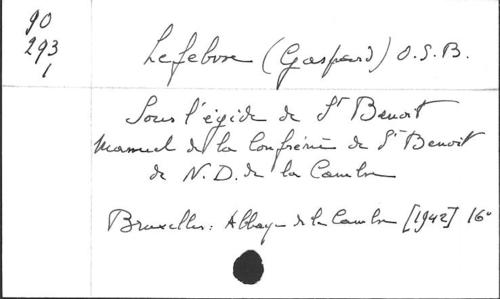 90
293
1
Lefebvre (Gaspard) O.S.B.
Sous l'égide de St Benoit
Manuel de la Confrérie de St Benoit
de N.D. de la Cambre
Bruxelles: Abbaye de la Cambre [1942] 16°